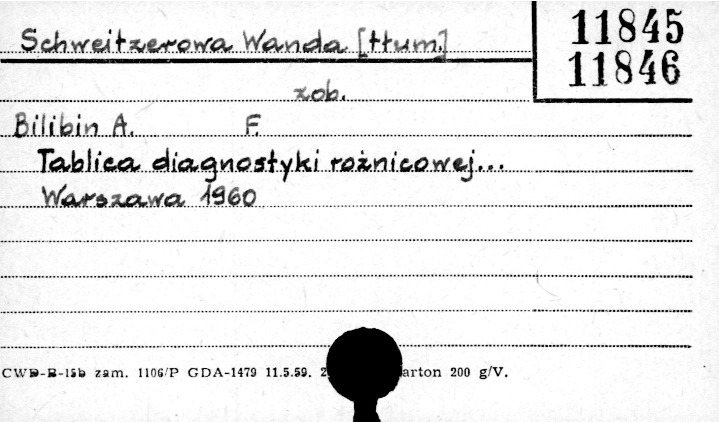 Schweitzerowa Wanda [tłum.]
11845
11846
zob.
Bilibin A. F.
Tablica diagnostyki rożnicowej...
Warszawa 1960
zam. 1106/P GDA-1479 11.5.59. arton 200 g/V.